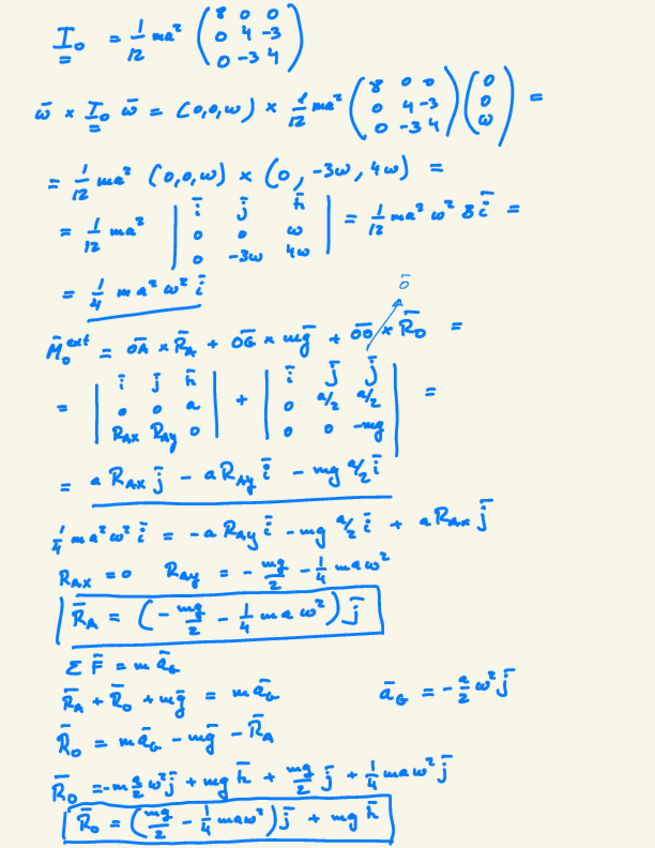 I̳₀ = 1/12 ma² (8 0 0; 0 4 -3; 0 -3 4)
ω̄ × I̳₀ ω̄ = (0,0,ω) × 1/12 ma² (8 0 0; 0 4 -3; 0 -3 4) (0; 0; ω) =
= 1/12 ma² (0,0,ω) × (0, -3ω, 4ω) =
= 1/12 ma² | ī j̄ k̄; 0 0 ω; 0 -3ω 4ω | = 1/12 ma² ω² 3 ī =
= 1/4 m a² ω² ī
0̄
M̄₀ᵉˣᵗ = OA × R̄_A + OG × mḡ + OO × R̄₀ =
= | ī j̄ k̄; 0 0 a; R_Ax R_Ay 0 | + | ī j̄ j̄; 0 a/2 a/2; 0 0 -mg | =
= a R_Ax j̄ - a R_Ay ī - mg a/2 ī
1/4 ma²ω² ī = -a R_Ay ī - mg a/2 ī + a R_Ax j̄
R_Ax = 0 R_Ay = - mg/2 - 1/4 maω²
R̄_A = (- mg/2 - 1/4 maω²) j̄
Σ F̄ = m ā_G
R̄_A + R̄₀ + mḡ = mā_G ā_G = - a/2 ω² j̄
R̄₀ = mā_G - mḡ - R̄_A
R̄₀ = -m a/2 ω² j̄ + mg k̄ + mg/2 j̄ + 1/4 maω² j̄
R̄₀ = (mg/2 - 1/4 maω²) j̄ + mg k̄